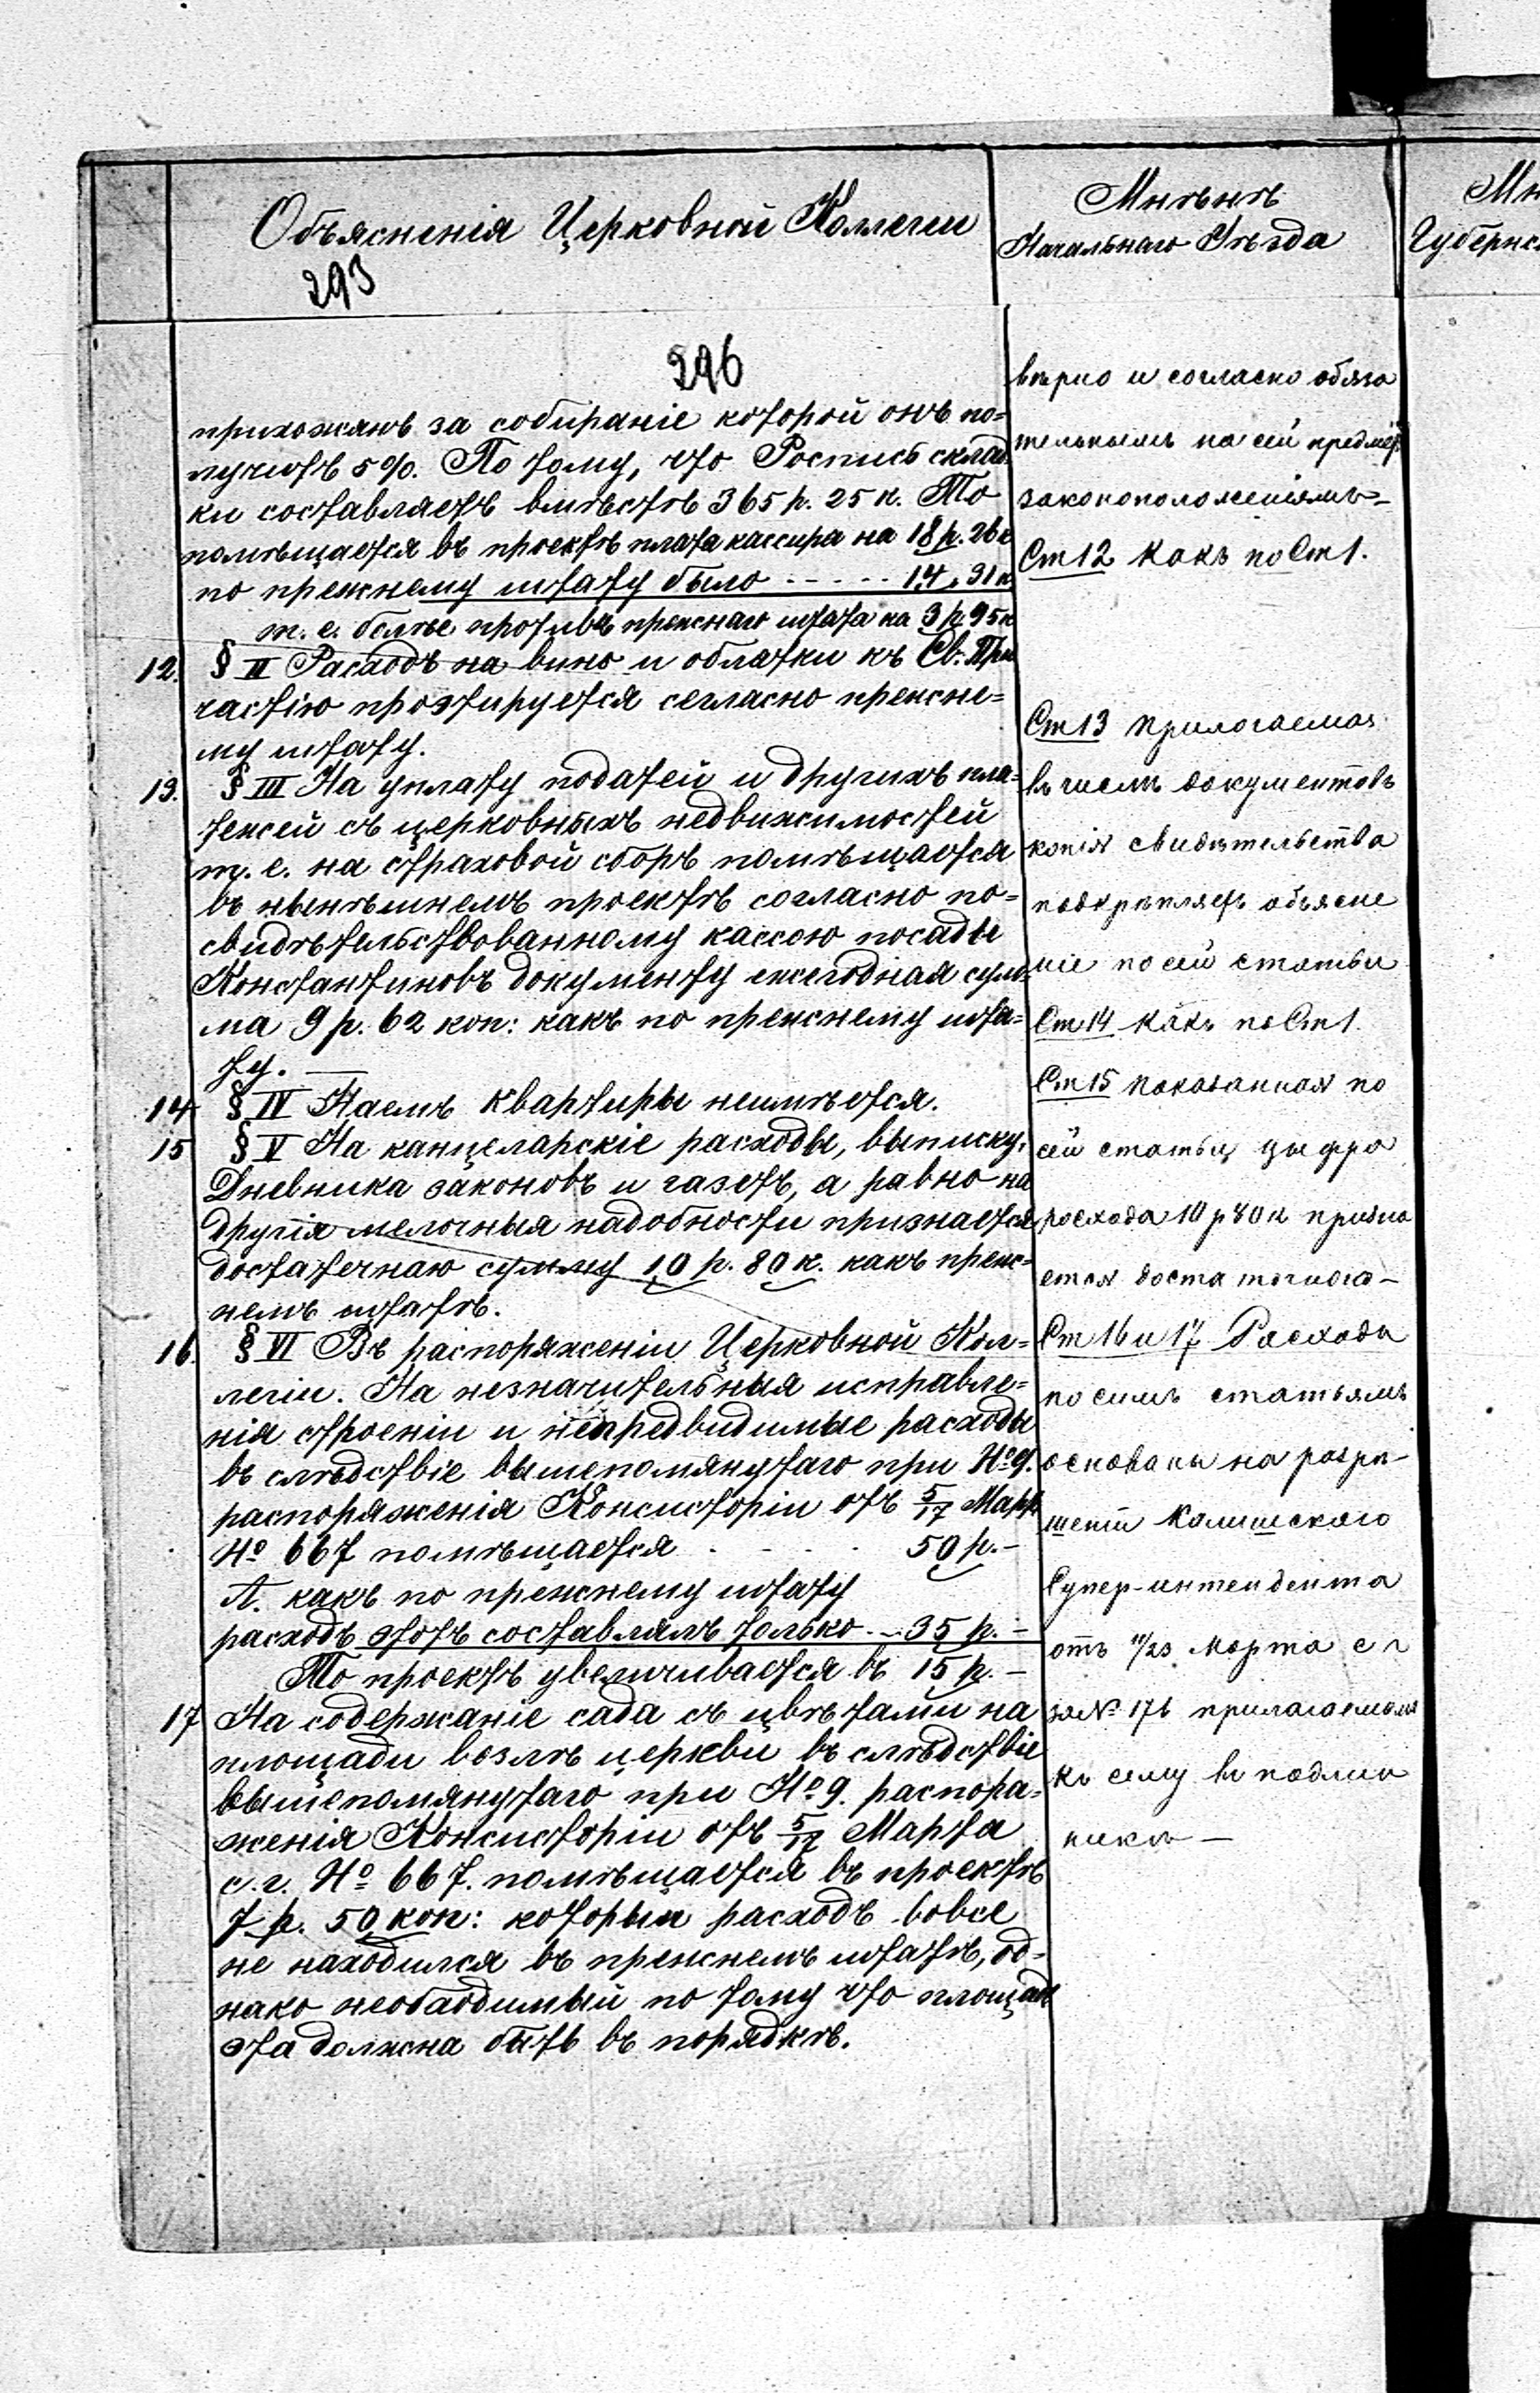 Объясненія Церковной Коллегіи
293
296
прихожанъ за собираніе которой онъ по=
лучитъ 5%. По тому, что Роспись склад
ки составляетъ вмѣстѣ 365 р. 25 к. То
помѣщается въ проектѣ плата кассира на 18 р. 26 к
по прежнему штату было - - - - - 14 „ 31 к
т. е. болѣе противъ прежнаго штата на 3 р. 95 к
12. § II Расходъ на вино и облатки къ Св. При
частію проэтируется сегласно прежне=
му штату.
13. § III На уплату податей и другихъ пла=
тежей съ церковныхъ недвижимостей
т. е. на страховой сборъ помѣщается
въ нынѣшнемъ проектѣ согласно по=
свидѣтельствованному кассою посады
Константиновъ документу ежегодная сум=
ма 9 р. 62 коп: какъ по прежнему шта=
ту. —
14 § IV Наемъ квартиры неимѣется.
15 § V На канцеларскіе расходы, выписку,
Дневника законовъ и газетъ, а равно на
другія мелочныя надобности признается
достаточнаю сумму 10 р. 80 к. какъ преж=
немъ штатѣ.
16. § VI Въ распоряженіи Церковной Кол=
легіи. На незначительныя исправле=
нія строеніи и непредвидимые расходы
въ слѣдствіе вышепомянутаго при № 9.
распоряженія Консисторіи отъ 5/17 Март
№ 667 помѣщается - - - - 50 р. –
А. какъ по прежнему штату
расходъ этотъ составлялъ только - - 35 р. –
То проектъ увеличивается въ 15 р. –
17 На содержаніе сада съ цвѣтами на
площади возлѣ церкви въ слѣдствіе
вышепомянутаго при № 9. распора=
женія Консисторіи отъ 5/17 Марта
с. г. № 667. помѣщается въ проектѣ
7 р. 50 коп: которыи расходъ вовсе
не находился въ прежнемъ штатѣ, од=
нако необходимый по тому что площадь
эта должна быть въ порядкѣ.
Мнѣнѣ
Начальнаго Уѣзда
вѣрно и согласно обяза
тельнымъ на сей предмет
законоположеніямъ –
Ст 12 Какъ по Ст 1.
Ст 13 Прилогаемая
въ числѣ документовъ
копія свидѣтельства
подкрѣпляетъ объясне
ніе по сей статьи
Ст 14 какъ по Ст 1.
Ст 15 показанная по
сей статьи цыфра
расхода 10 р 80 к призна
ется достаточною –
Ст 16 и 17 Расходы
по симъ статьямъ
основаны на разрѣ–
шеніи Калишскаго
Супер-интендента
отъ 11/23 Марта с г
за № 176 прилагаемыя
къ сему въ подлин
никѣ –
Мн
Губернс